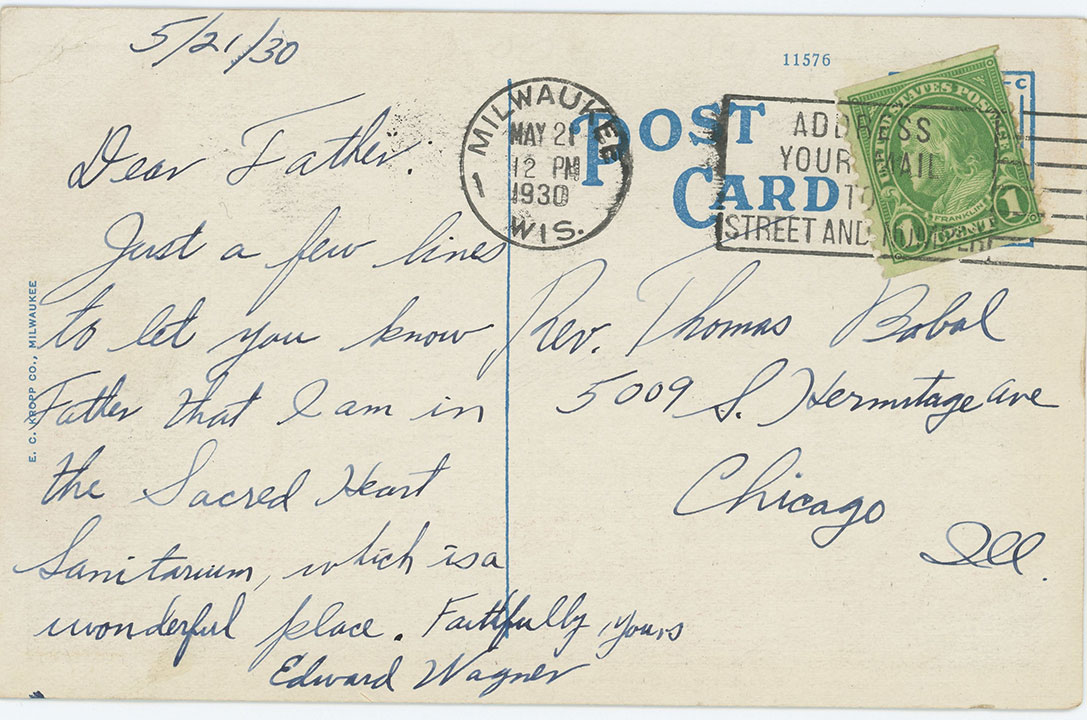 5/21/30
11576
MILWAUKEE
MAY 21
12 PM
1930
WIS.
1
POST
CARD
ADDRESS
YOUR MAIL
TO
STREET AND NUMBER
UNITED STATES POSTAGE
FRANKLIN
1 CENT 1
Dear Father:
Just a few lines
to let you know
Father that I am in
the Sacred Heart
Sanitarium, which is a
wonderful place. Faithfully yours
Edward Wagner
Rev. Thomas Bobal
5009 S. Hermitage ave
Chicago
Ill.
E. C. KROPP CO., MILWAUKEE